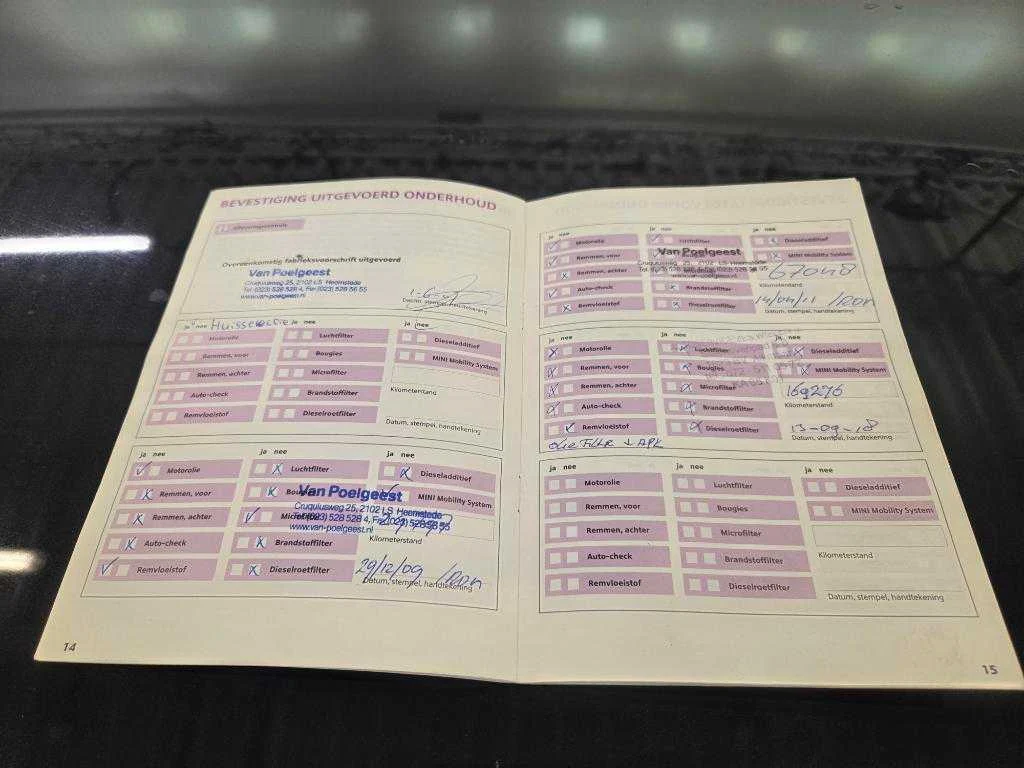 BEVESTIGING UITGEVOERD ONDERHOUD
Afleveringscontrole
Overeenkomstig fabrieksvoorschrift uitgevoerd
Van Poelgeest
Cruquiusweg 25, 2102 LS Heemstede
Tel.(023) 528 528 4, Fax (023) 528 56 55
www.van-poelgeest.nl
Datum, stempel, handtekening
ja nee ja nee ja nee
Motorolie Luchtfilter Dieseladditief
Remmen, voor Bougies MINI Mobility System
Remmen, achter Microfilter
Auto-check Brandstoffilter Kilometerstand
Remvloeistof Dieselroetfilter Datum, stempel, handtekening
ja nee ja nee ja nee
Motorolie Luchtfilter Dieseladditief
Remmen, voor Bougies MINI Mobility System
Van Poelgeest
Cruquiusweg 25, 2102 LS Heemstede
Tel.(023) 528 528 4, Fax (023) 528 56 55
www.van-poelgeest.nl
Remmen, achter Microfilter
Auto-check Brandstoffilter Kilometerstand
29/12/09 Ron
Remvloeistof Dieselroetfilter Datum, stempel, handtekening
14
ja nee ja nee ja nee
Motorolie Luchtfilter Dieseladditief
Remmen, voor MINI Mobility System
Van Poelgeest
Cruquiusweg 25, 2102 LS Heemstede
Tel.(023) 528 528 4, Fax (023) 528 56 55
Remmen, achter 67048
Auto-check Brandstoffilter Kilometerstand
14/04/11 Ron
Remvloeistof Dieselroetfilter Datum, stempel, handtekening
ja nee ja nee ja nee
Motorolie Luchtfilter Dieseladditief
Remmen, voor Bougies MINI Mobility System
Remmen, achter Microfilter 169276
Auto-check Brandstoffilter Kilometerstand
13-09-18
Remvloeistof Dieselroetfilter Datum, stempel, handtekening
olie Filter + APK
ja nee ja nee ja nee
Motorolie Luchtfilter Dieseladditief
Remmen, voor Bougies MINI Mobility System
Remmen, achter Microfilter
Auto-check Brandstoffilter Kilometerstand
Remvloeistof Dieselroetfilter Datum, stempel, handtekening
15